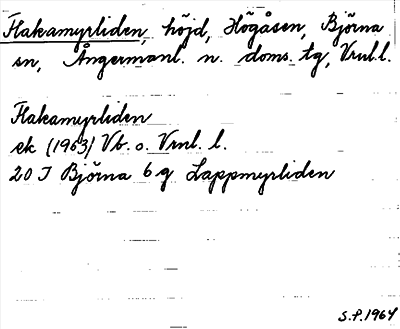 Flakamyrliden, höjd, Högåsen, Björna
sn, Ångermanl. n. doms. tg, Vrnl.l.
Flakamyrliden
ek (1963) Vb. o. Vrnl. l.
20 J Björna 6 g Lappmyrliden
S.P. 1964